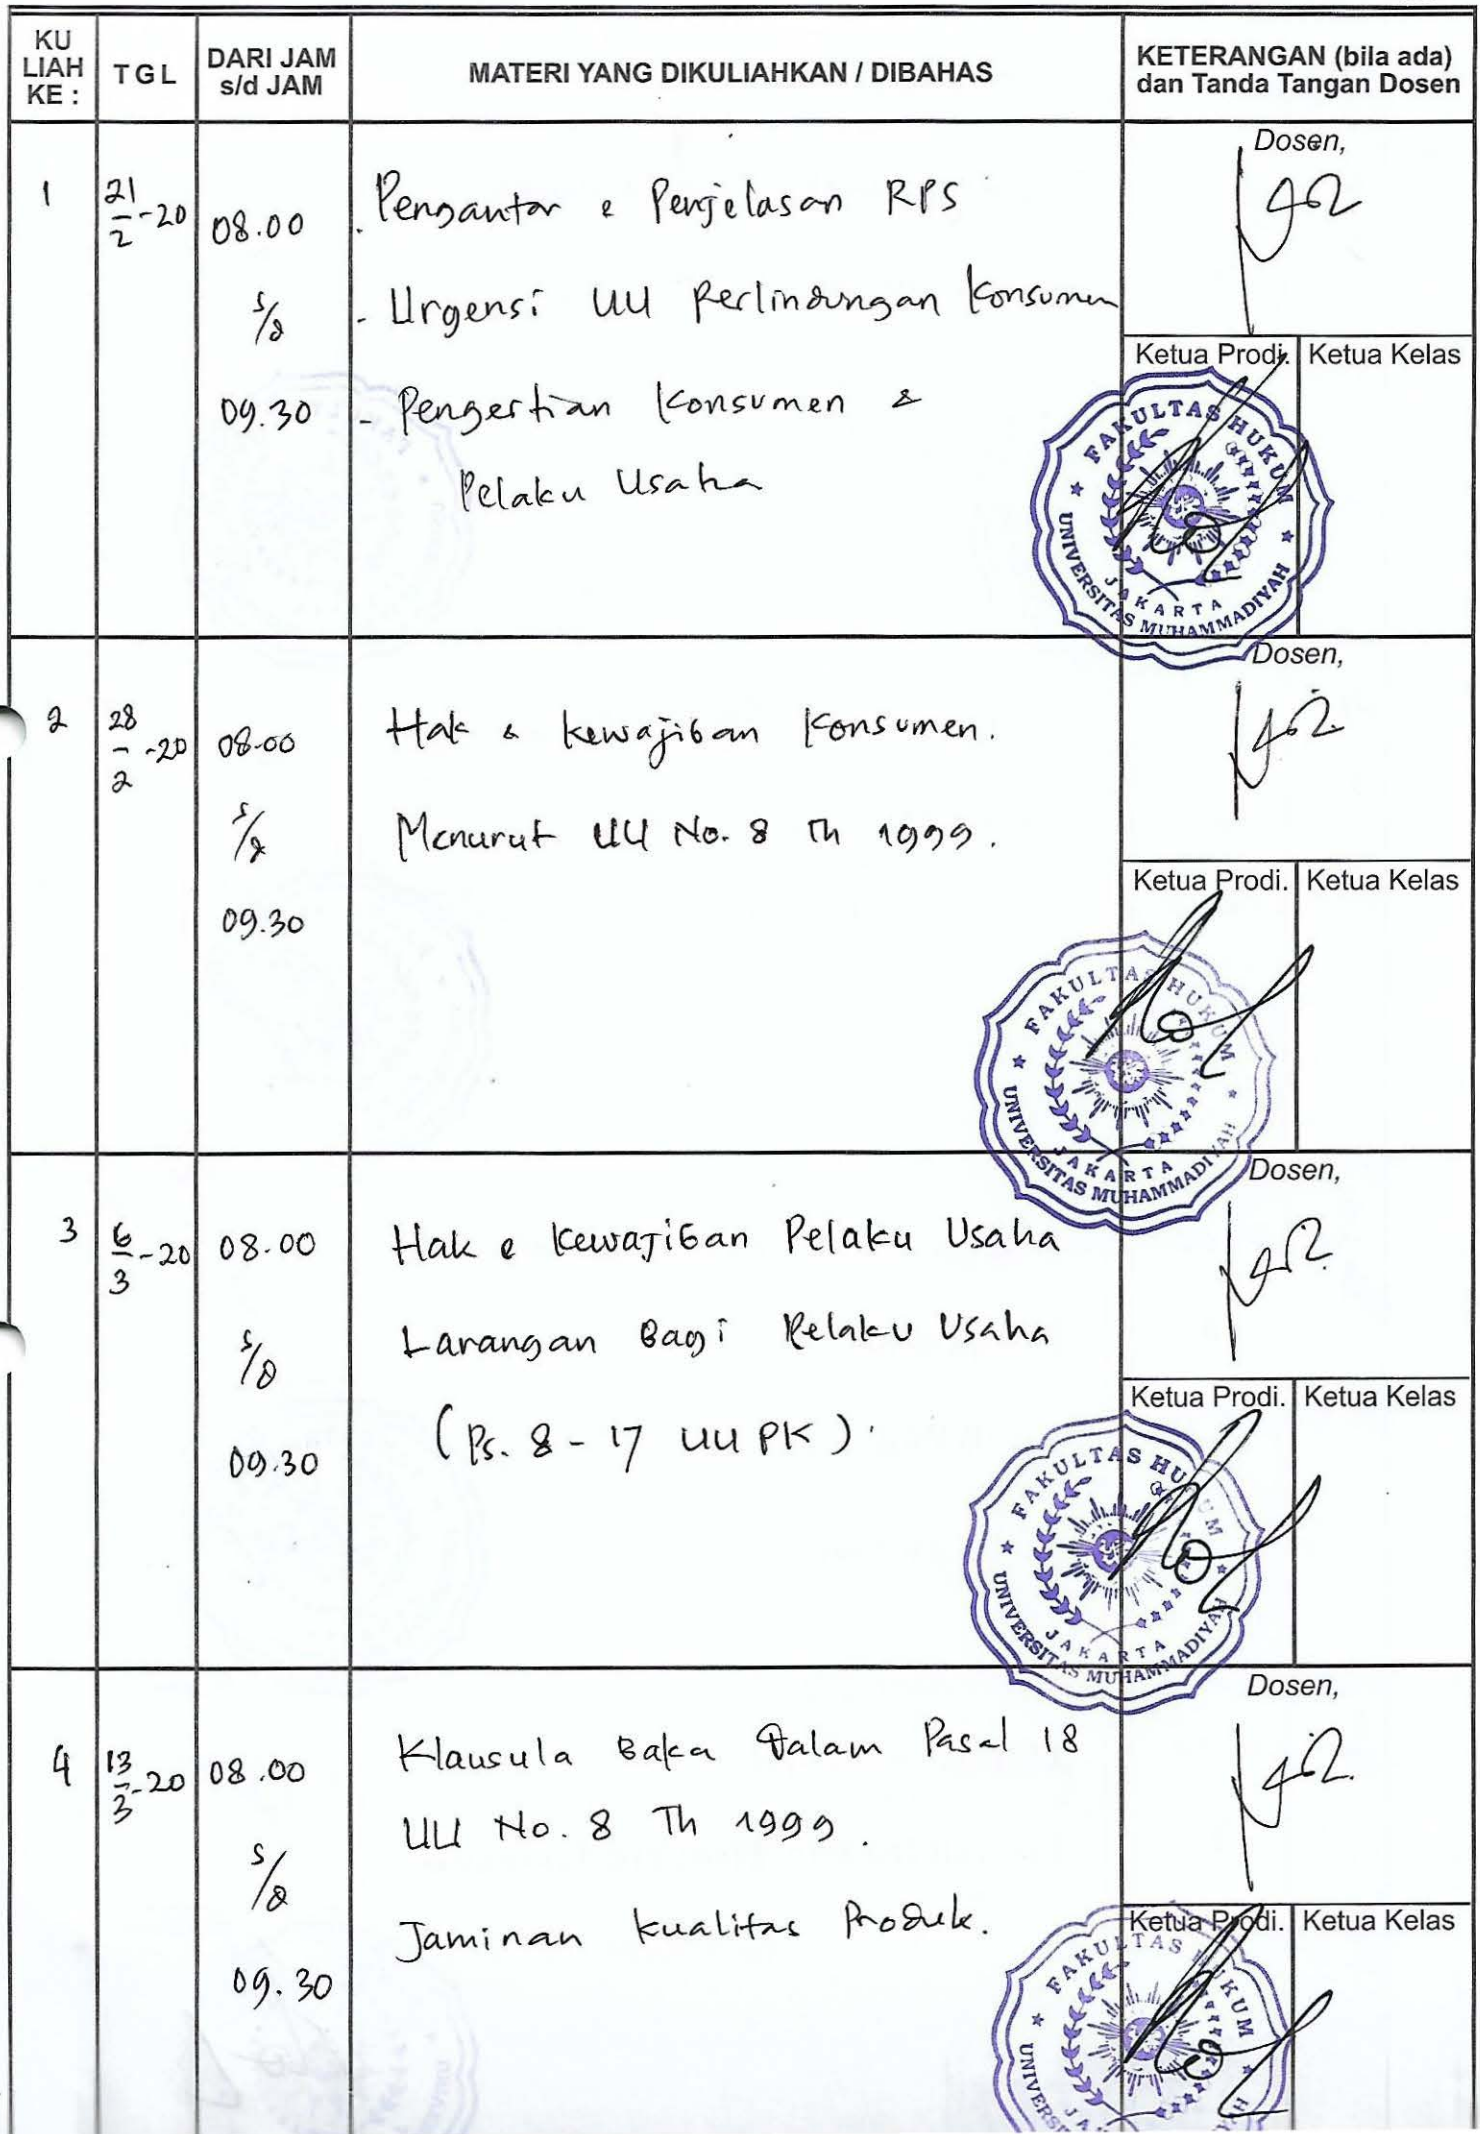 KU
LIAH
KE :
TGL
DARI JAM
s/d JAM
MATERI YANG DIKULIAHKAN / DIBAHAS
KETERANGAN (bila ada)
dan Tanda Tangan Dosen
1
21/2-20
08.00
s/d
09.30
- Pengantar & Penjelasan RPS
- Urgensi UU Perlindungan Konsumen
- Pengertian Konsumen &
Pelaku Usaha
Dosen,
Ketua Prodi.
Ketua Kelas
FAKULTAS HUKUM
UNIVERSITAS MUHAMMADIYAH
JAKARTA
2
28/2-20
08.00
s/d
09.30
Hak & Kewajiban Konsumen.
Menurut UU No. 8 Th 1999.
Dosen,
Ketua Prodi.
Ketua Kelas
FAKULTAS HUKUM
UNIVERSITAS MUHAMMADIYAH
JAKARTA
3
6/3-20
08.00
s/d
09.30
Hak & Kewajiban Pelaku Usaha
Larangan Bagi Pelaku Usaha
(Ps. 8 - 17 UUPK).
Dosen,
Ketua Prodi.
Ketua Kelas
FAKULTAS HUKUM
UNIVERSITAS MUHAMMADIYAH
JAKARTA
4
13/3-20
08.00
s/d
09.30
Klausula Baku Dalam Pasal 18
UU No. 8 Th 1999.
Jaminan Kualitas Produk.
Dosen,
Ketua Prodi.
Ketua Kelas
FAKULTAS HUKUM